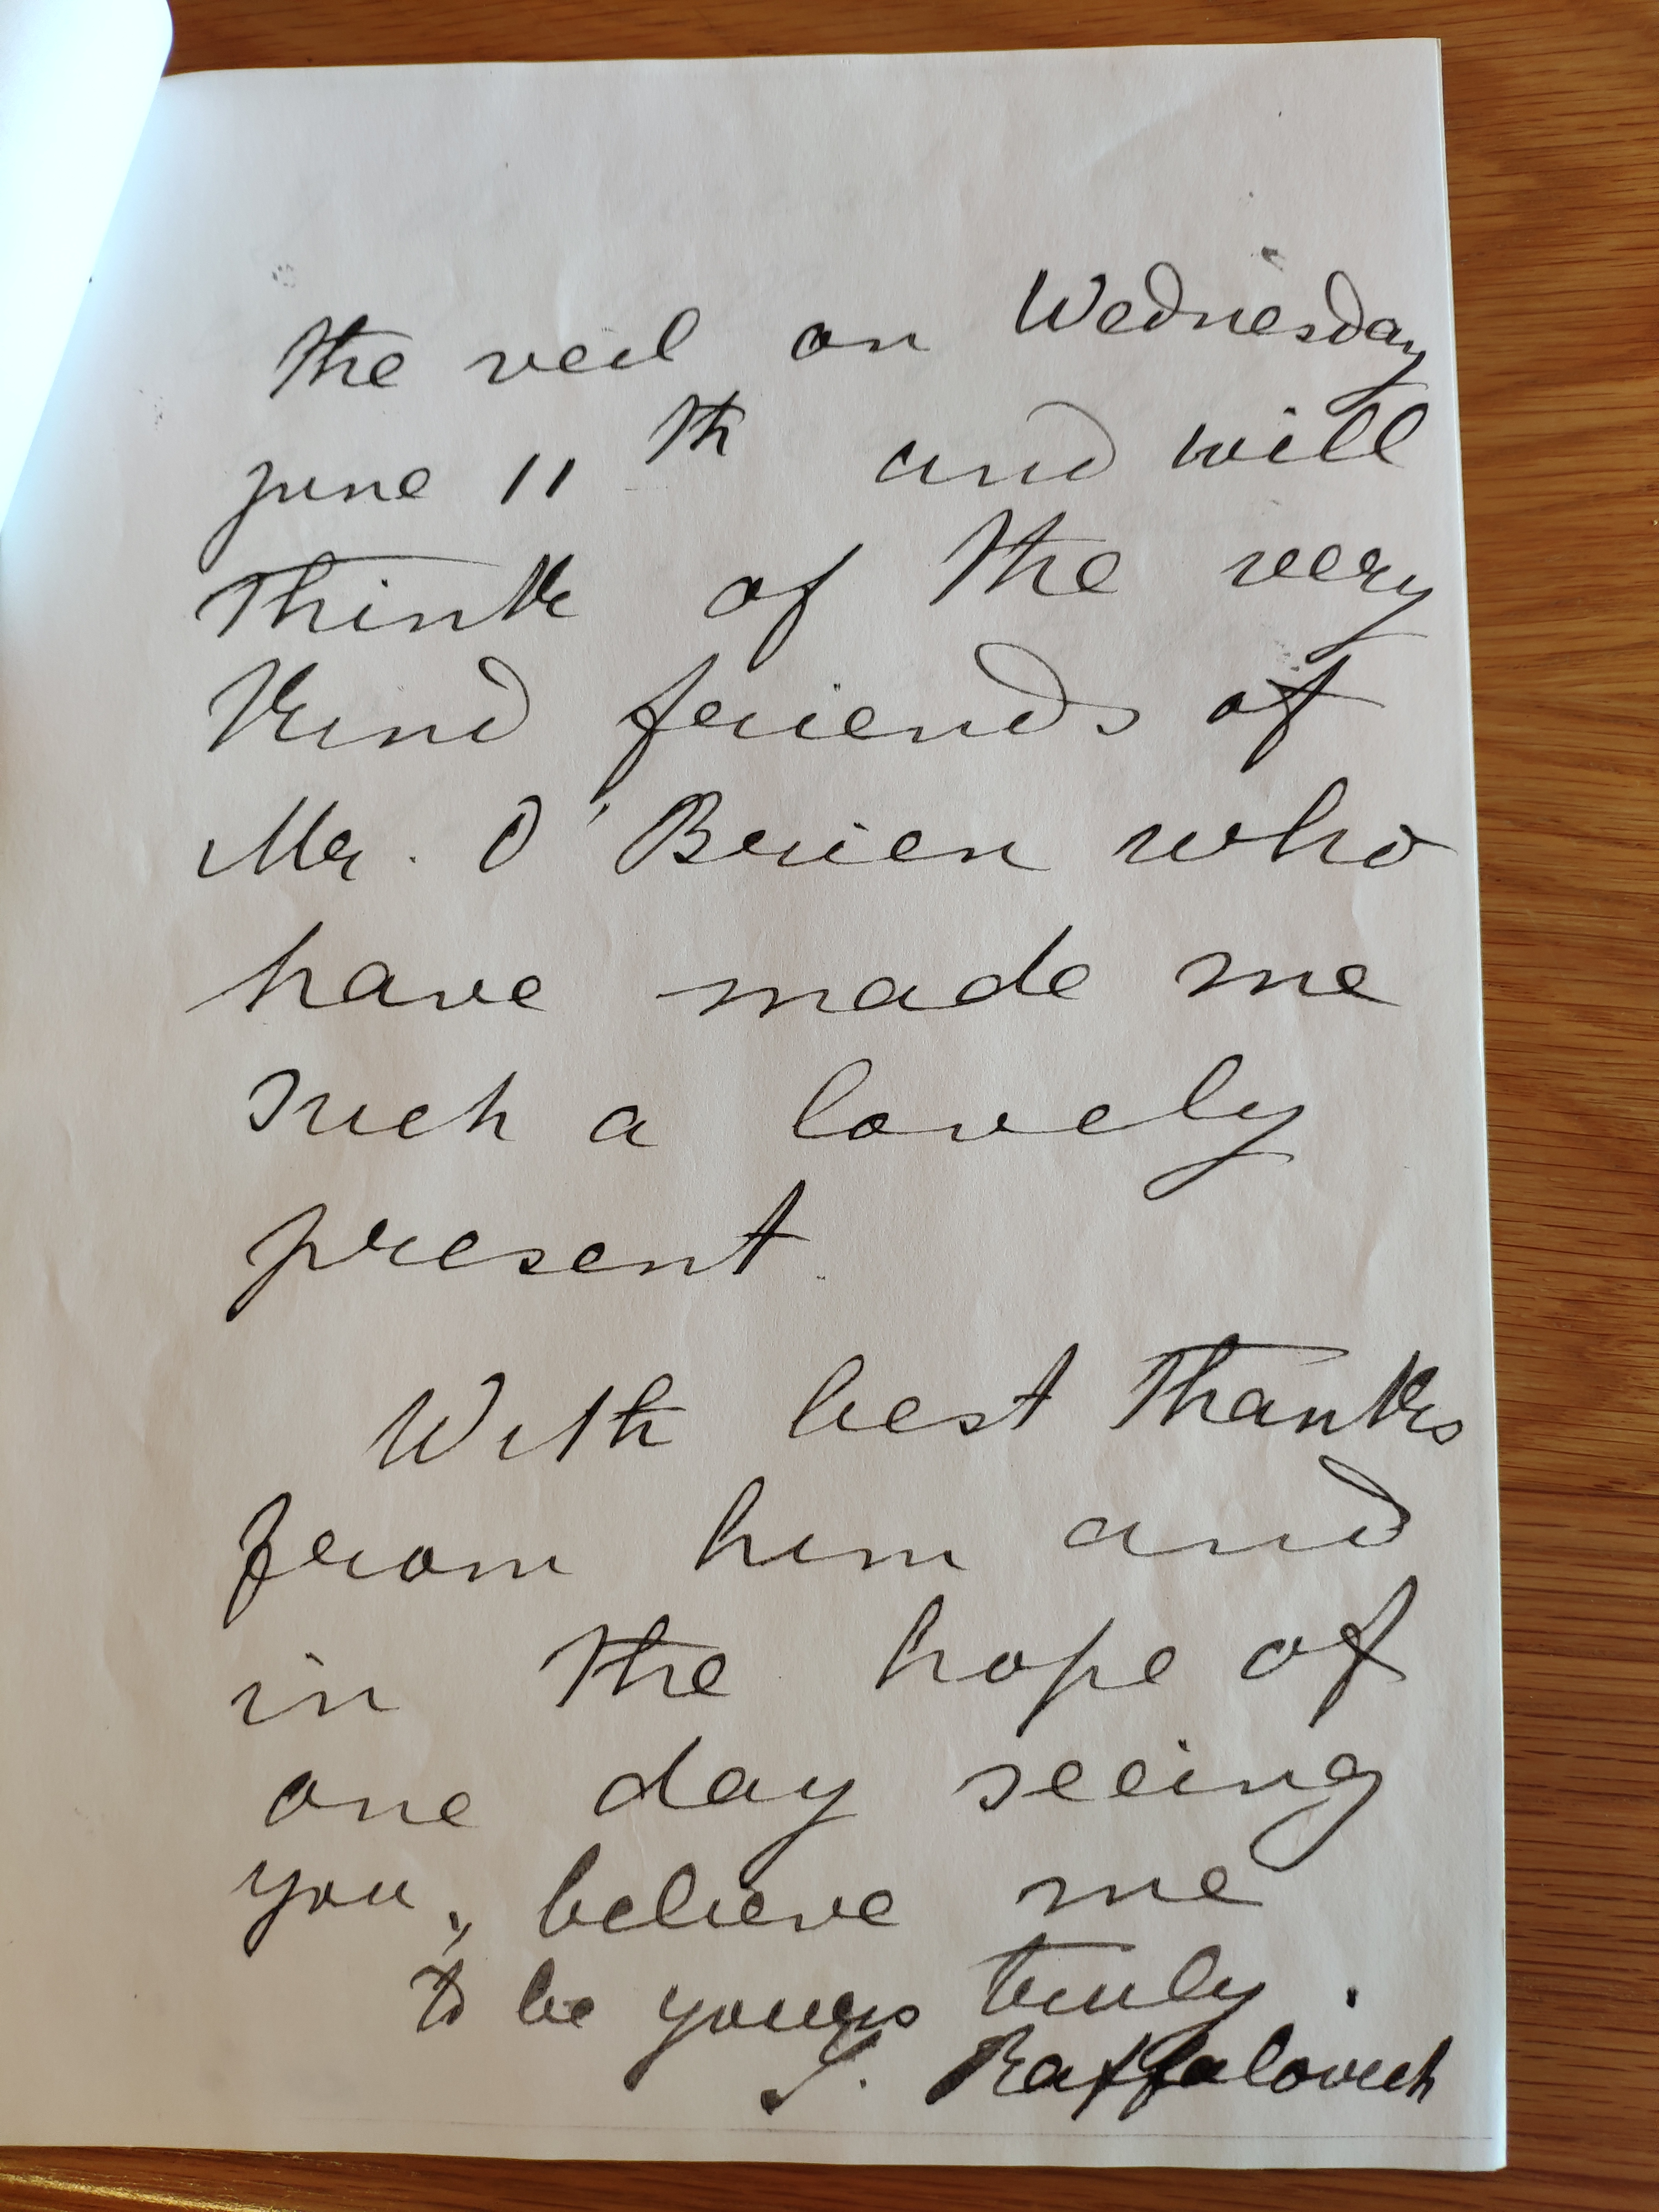 the veil on Wednesday
june 11th and will
think of the very
kind friends of
Mr. O'Brien who
have made me
such a lovely
present.
With best thanks
from him and
in the hope of
one day seeing
you, believe me
to be yours truly.
S. Raffalovich